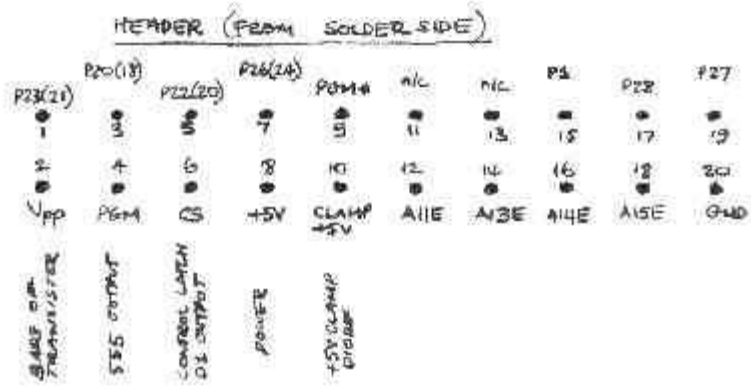 HEADER (FROM SOLDER SIDE)
P23(21) P20(18) P22(20) P26(24) PGM# n/c n/c P1 P28 P27
1 3 5 7 9 11 13 15 17 19
2 4 6 8 10 12 14 16 18 20
Vpp PGM CS +5V CLAMP +5V A11E A13E A14E A15E GND
BASE OF TRANSISTER
555 OUTPUT
CONTROL LATCH
OUTPUT
POWER
+5V CLAMP
DIODE